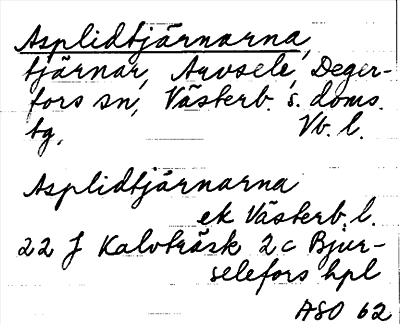 Asplidtjärnarna,
tjärnar, Arvsele, Deger-
fors sn, Västerb. s. doms.
tg, Vb. l.
Asplidtjärnarna
ek Västerb. l.
22 J Kalvträsk 2c Bjur-
selefors hpl
ASO 62